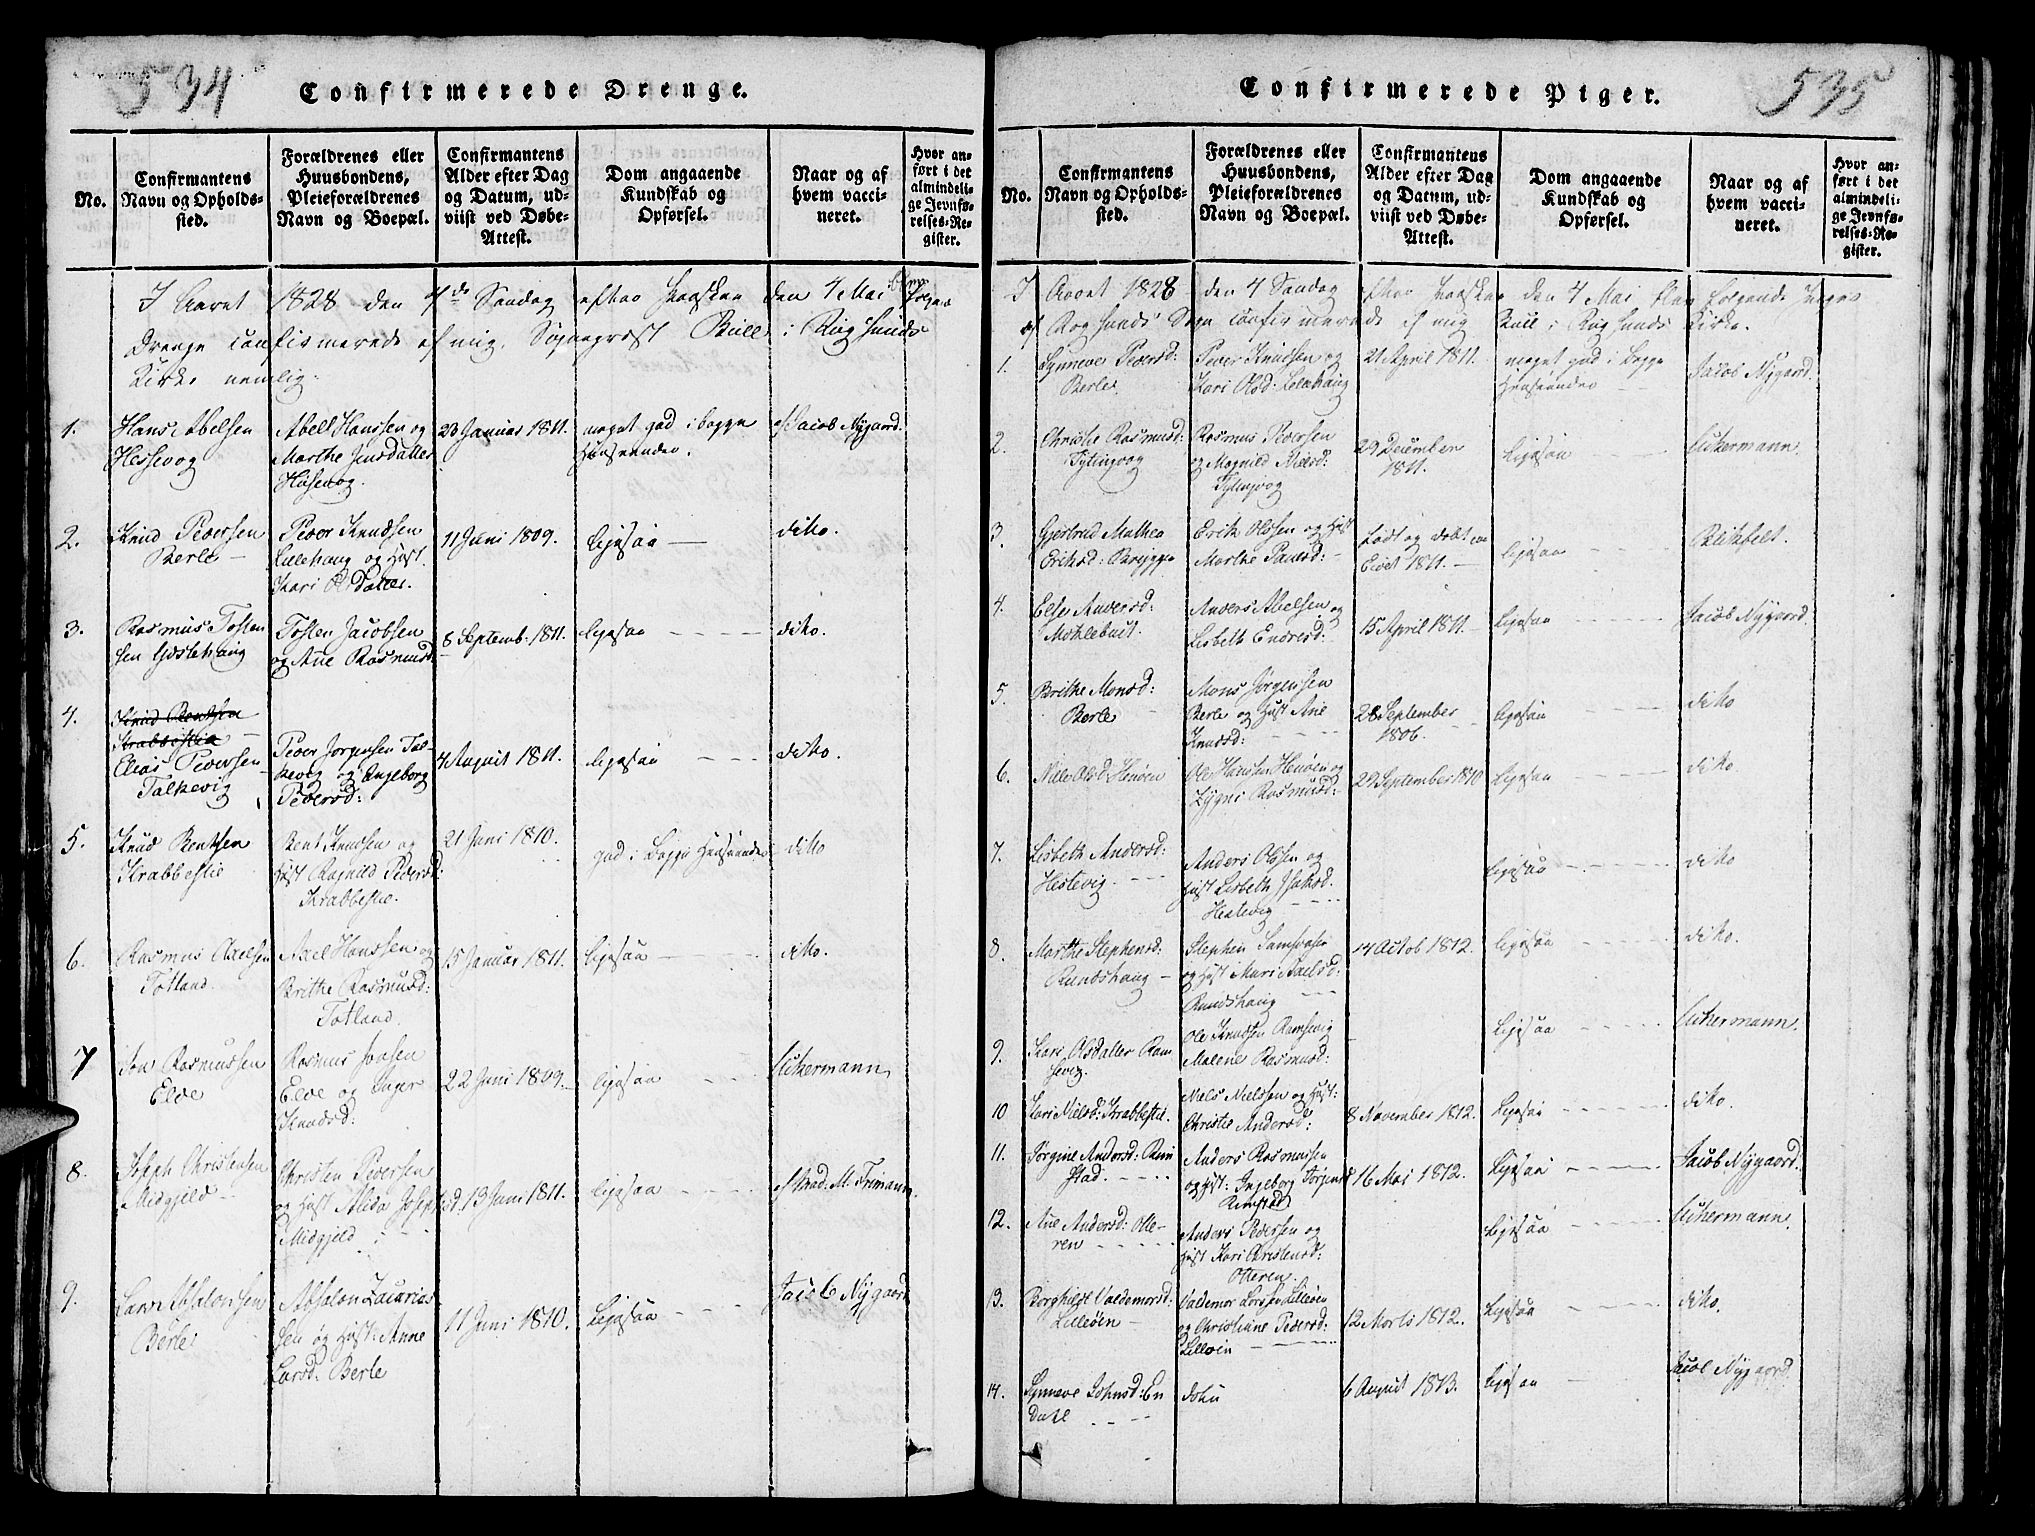 534
Confirmerede Drenge.
No.
Confirmantens
Navn og Opholds-
sted.
Forældrenes eller
Huusbondens,
Pleieforældrenes
Navn og Boepæl.
Confirmantens
Alder efter Dag
og Datum, ud-
viist ved Døbe-
Attest.
Dom angaaende
Kundskab og
Opførsel.
Naar og af
hvem vacci-
neret.
Hvor an-
ført i det
almindeli-
ge Jevnfø-
relses-Re-
gister.
I Aaret 1828 den 4de Søndag efter Paasken den 4 Mai blev følgende
Drenge confirmerede af mig, Sognepræst Bull i Rugsunds
Kirke nemlig:
1.
Hans Abelsen
Hessevog
Abell Hanssen og
Marthe Jensdatter
23 Januar 1811.
meget god i begge
Henseender.
af Jacob Nygaard.
2.
Knud Pedersen
Berle —
Peder Knudsen
Lillehaug og Hust.
Kari Olsdatter.
11 Juni 1809.
ligesaa —
dito.
3.
Rasmus Tosten
sen
Tosten Jacobsen
og Ane Rasmusd:
8 Septemb: 1811.
ligesaa
dito.
4.
Knud Bentsen
Krabbestie
Elias Pedersen
Talkevig
Peder Jørgensen Tal-
kevig og Ingeborg
Pedersd:
4 August 1811.
ligesaa
dito.
5.
Knud Bentsen
Krabbestie
Bent Knudsen og
Hust Ragnild Pedersd:
Krabbestie.
21 Juni 1810.
god i begge Henseender
dito
6.
Rasmus Axelsen
Totland.
Axel Hanssen og
Brithe Rasmusd:
Totland.
15 Januar 1811.
ligesaa
dito.
7
Jon Rasmussen
Elde
Rasmus Jonsen
Elde og Inger
Knudsd:
22 Juni 1809.
ligesaa
Uchermann
8.
Joseph Christensen
Midgjeld
Christen Pedersen
og Hust Alida Josephsd.
Midgjeld
13 Juni 1811.
ligesaa
af M. Frimann.
9.
Lars Absalonsen
Berle
Absalon Zacarias
sen og Hust: Anne
Larsd: Berle
11 Juni 1810.
ligesaa
Jacob Nygaard
535
Confirmerede Piger.
No.
Confirmantens
Navn og Opholds-
sted.
Forældrenes eller
Huusbondens,
Pleieforældrenes
Navn og Boepæl.
Confirmantens
Alder efter Dag
og Datum, ud-
viist ved Døbe-
Attest.
Dom angaaende
Kundskab og
Opførsel.
Naar og af
hvem vacci-
neret.
Hvor an-
ført i det
almindeli-
ge Jevnfø-
relses-Re-
gister.
I Aaret 1828 den 4 Søndag efter Paasken den 4 Mai blev følgende Piger
af Rugsunds Sogn confirmerede af mig Bull i Rugsunds Kirke.
1.
Synneve Pedersd:
Berle.
Peder Knudsen og
Kari Olsd: Lillehaug
21 April 1811.
meget god i begge
Henseender
Jacob Nygaard.
2.
Christie Rasmusd:
Tytingvog
Rasmus Pedersen
og Magnild Nielsd:
Tytingvog
29 December
1811.
ligesaa
Uchermann.
3.
Gjertrud Mathea
Eriksd:
Erik Olssen og Hust
Marthe Paulsd: —
født og døbt
1811. —
ligesaa
Blikfelt.
4.
Else Andersd:
Mohlebust.
Anders Abelsen og
Lisbeth Endresd:
15 April 1811.
ligesaa
Jacob Nygaard
5
Brithe Monsd:
Berle
Mons Jørgensen
Berle og Hust Ane
Knudsd:
28 September
1806.
ligesaa
dito
6.
Nille Olsd Henøen
Ole Hansen Henøen
Rasmusd:
29 September 1810
ligesaa
dito
7.
Lisbeth Andersd:
Hestevig.
Anders Olssen og
Hust Lisbeth Isaksd.
Hestevig
ligesaa
dito
8.
Marthe Stephensd:
Rundshaug —
Stephen Samsonsen
og Hust Mari Axelsd:
Rundshaug
14 Octob 1812.
ligesaa
dito.
9.
Kari Olsdatter Ram
sevig
Ole Knudsen Ramsevig
Malene Rasmusd:
ligesaa
Uchermann.
10
Kari Nielsd: Krabbestie.
Niels Nielssen og Hust:
Christie Andersd:
8 November 1812.
ligesaa
dito.
11.
Jørgine Andersd: Rim
stad.
Anders Rasmussen
og Hust: Ingeborg Jørgensd
Rimstad
16 Mai 1812.
ligesaa
Jacob Nygaard.
12.
Ane Andersd: Otte-
ren
Anders Pedersen og
Hust Kari Christensd:
Otteren.
ligesaa
Uchermann.
13.
Borghild Valdemorsd:
Lilleøen —
Valdemor Larsen Lilleøen
og Christiane Pedersd:
Lilleøen
12 Marts 1812.
ligesaa
dito.
14.
Synneve Johnsd: En
dahl
John
6 August 1813.
ligesaa
Jacob Nygaard